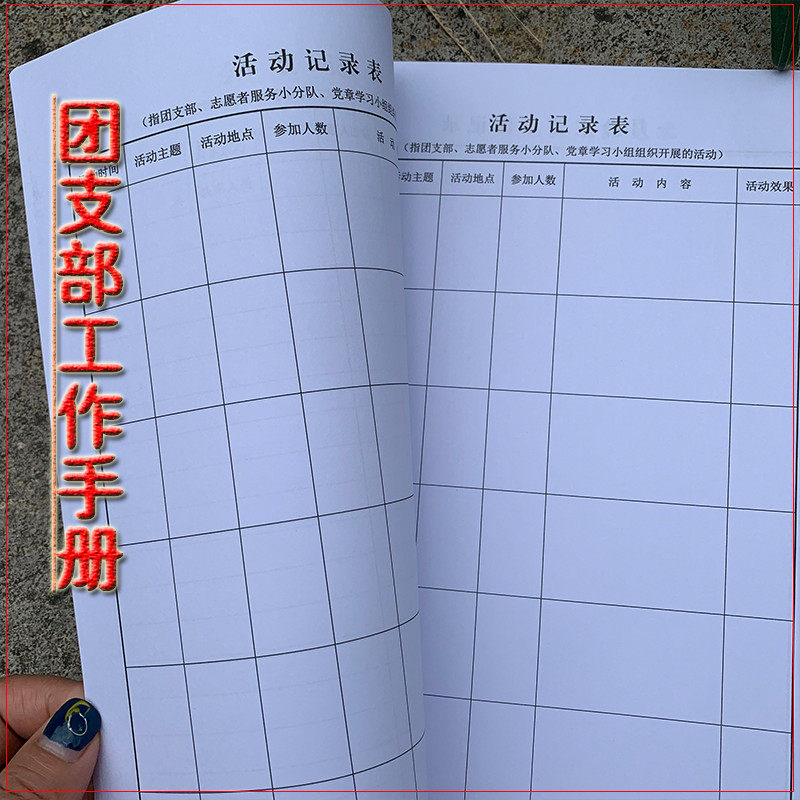 团支部工作手册
活动记录表
（指团支部、志愿者服务小分队、党章学习小组组织
时间 活动主题 活动地点 参加人数 活 动
活动记录表
（指团支部、志愿者服务小分队、党章学习小组组织开展的活动）
活动主题 活动地点 参加人数 活 动 内 容 活动效果